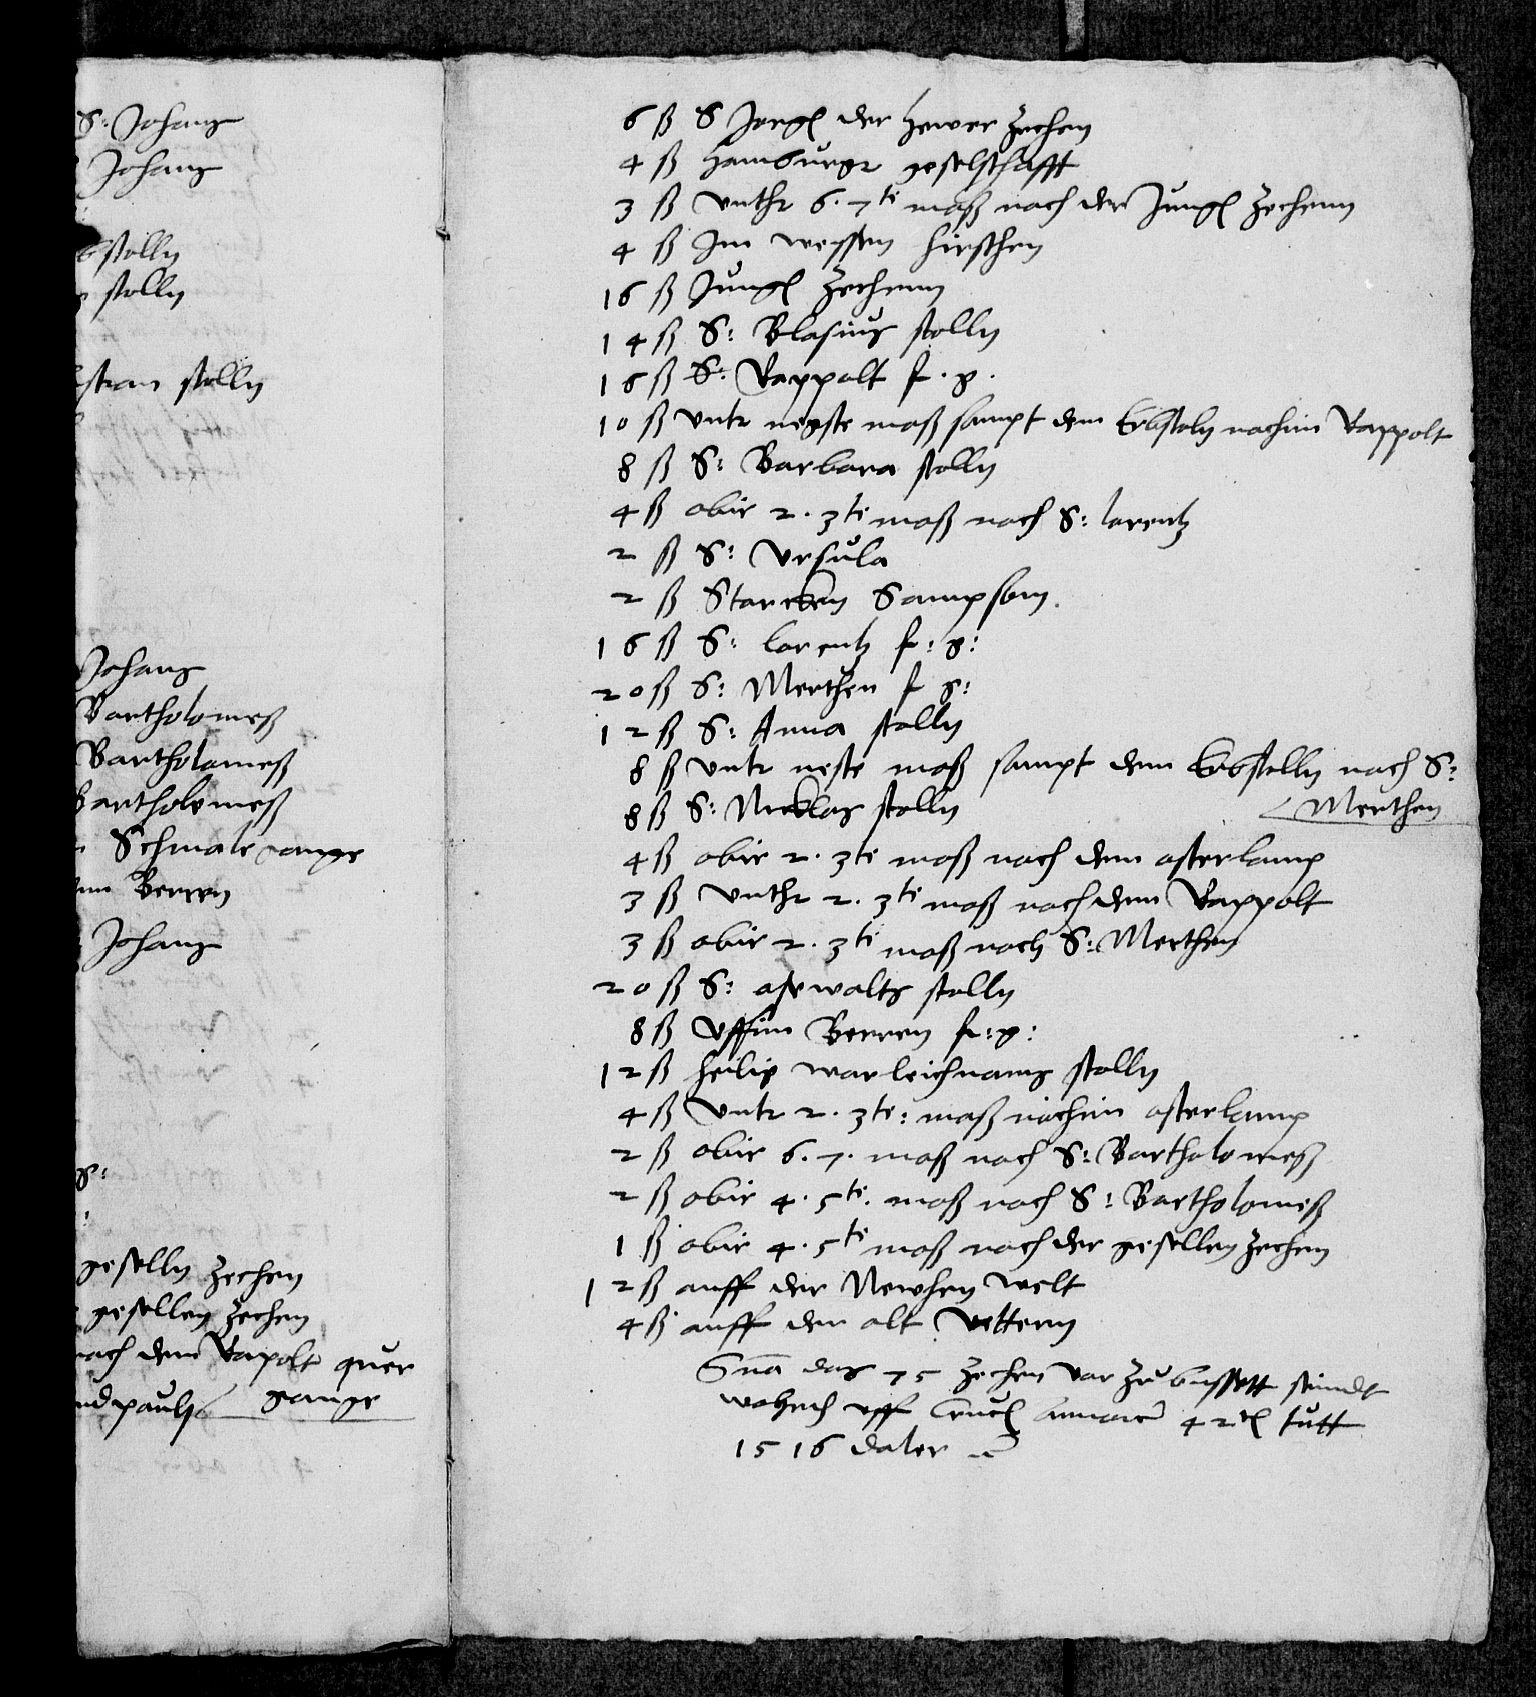 S: Johans
Johans
stolln
stolln
stian stolln
Johans
Bartholomeß
Bartholomeß
Bartholomeß
Schmale range
Berren
Johans
geselln zechen
gesellen zechen
nach dem Rapolt quer
gange
6 ß S Jorgl der hewer zechen
4 ß hamburgr geselschafft
3 ß vnthr 6. 7te maß nach der Jungl zechenn
4 ß Im weyssen hirschen
16 ß Jungl zechenn
14 ß S: Blasius stolln
16 ß S: Rappolt f. g.
10 ß vntr negste maß sampt dem Erbstoln nachim Rappolt
8 ß S: Barbara stolln
4 ß obir 2. 3te maß nach S: lorentz
2 ß S: Vrsula
2 ß Starcken Sampson.
16 ß S: lorentz f: g:
20 ß S: Merthen f g:
12 ß S: Anna stolln
8 ß vntr neste maß sampt dem Erbstolln nach S:
Merthen
8 ß S: Nicklas stolln
4 ß obir 2. 3te maß nach dem osterlamp
3 ß vnthr 2. 3te maß nach dem Rappolt
3 ß obir 2. 3te maß nach S: Merthen
20 ß S: oswalts stolln
8 ß vffim Berren f: g:
12 ß heilig warleichnams stolln
4 ß vntr 2. 3te: maß nachim osterlamp
2 ß obir 6. 7. maß nach S: Bartholomeß
2 ß obir 4. 5te. maß nach S: Bartholomeß
1 ß obir 4. 5te maß nach der gesellen zechen
12 ß auff der Newhen welt
4 ß auff den alt Vettern
Sua das 75 zechen vor zubussett seindt
vff Crucl 42 tutt
1516 daler